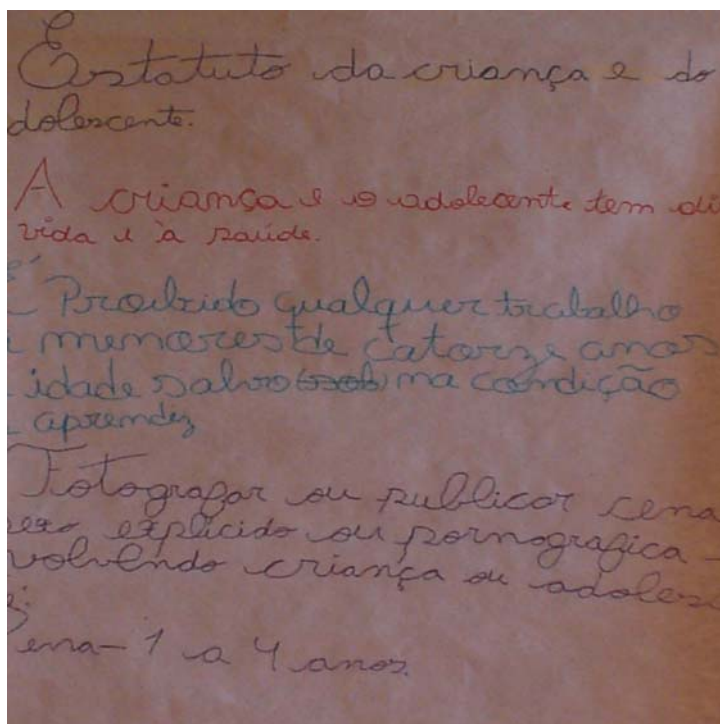 Estatuto da criança e do
dolescente.
A criança e o adolecente tem di
vida e à saúde.
É Proibido qualquer trabalho
menores de catorze anos
idade salvo (sob) na condição
aprendez
Fotografar ou publicar cena
sexo explícido ou pornografica -
volvendo criança ou adoles
Pena - 1 a 4 anos.